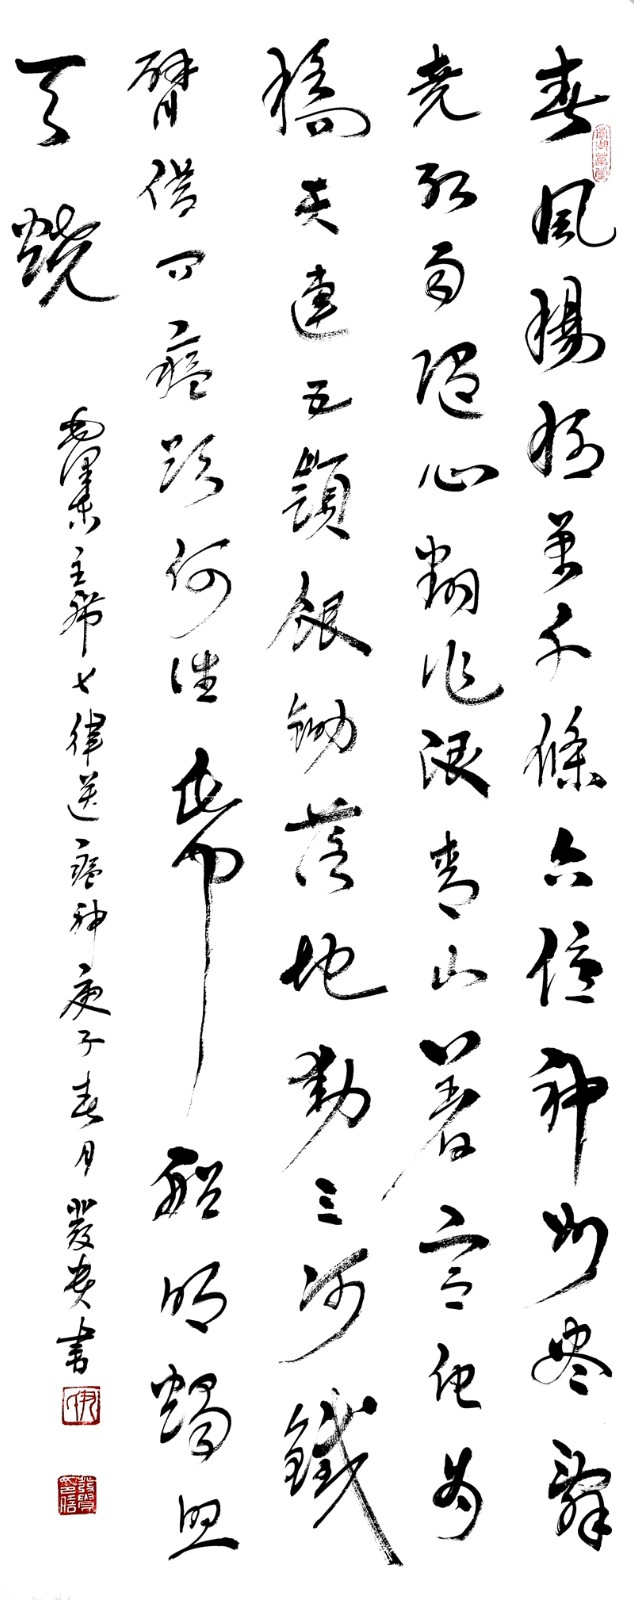 春風楊柳萬千條六億神州盡舜
堯紅雨隨心翻作浪青山著意化為
橋天連五嶺銀鋤落地動三河鐵
臂借問瘟欲何往帋船明燭照
天燒
毛澤東主席七律送瘟神庚子春月發貴書